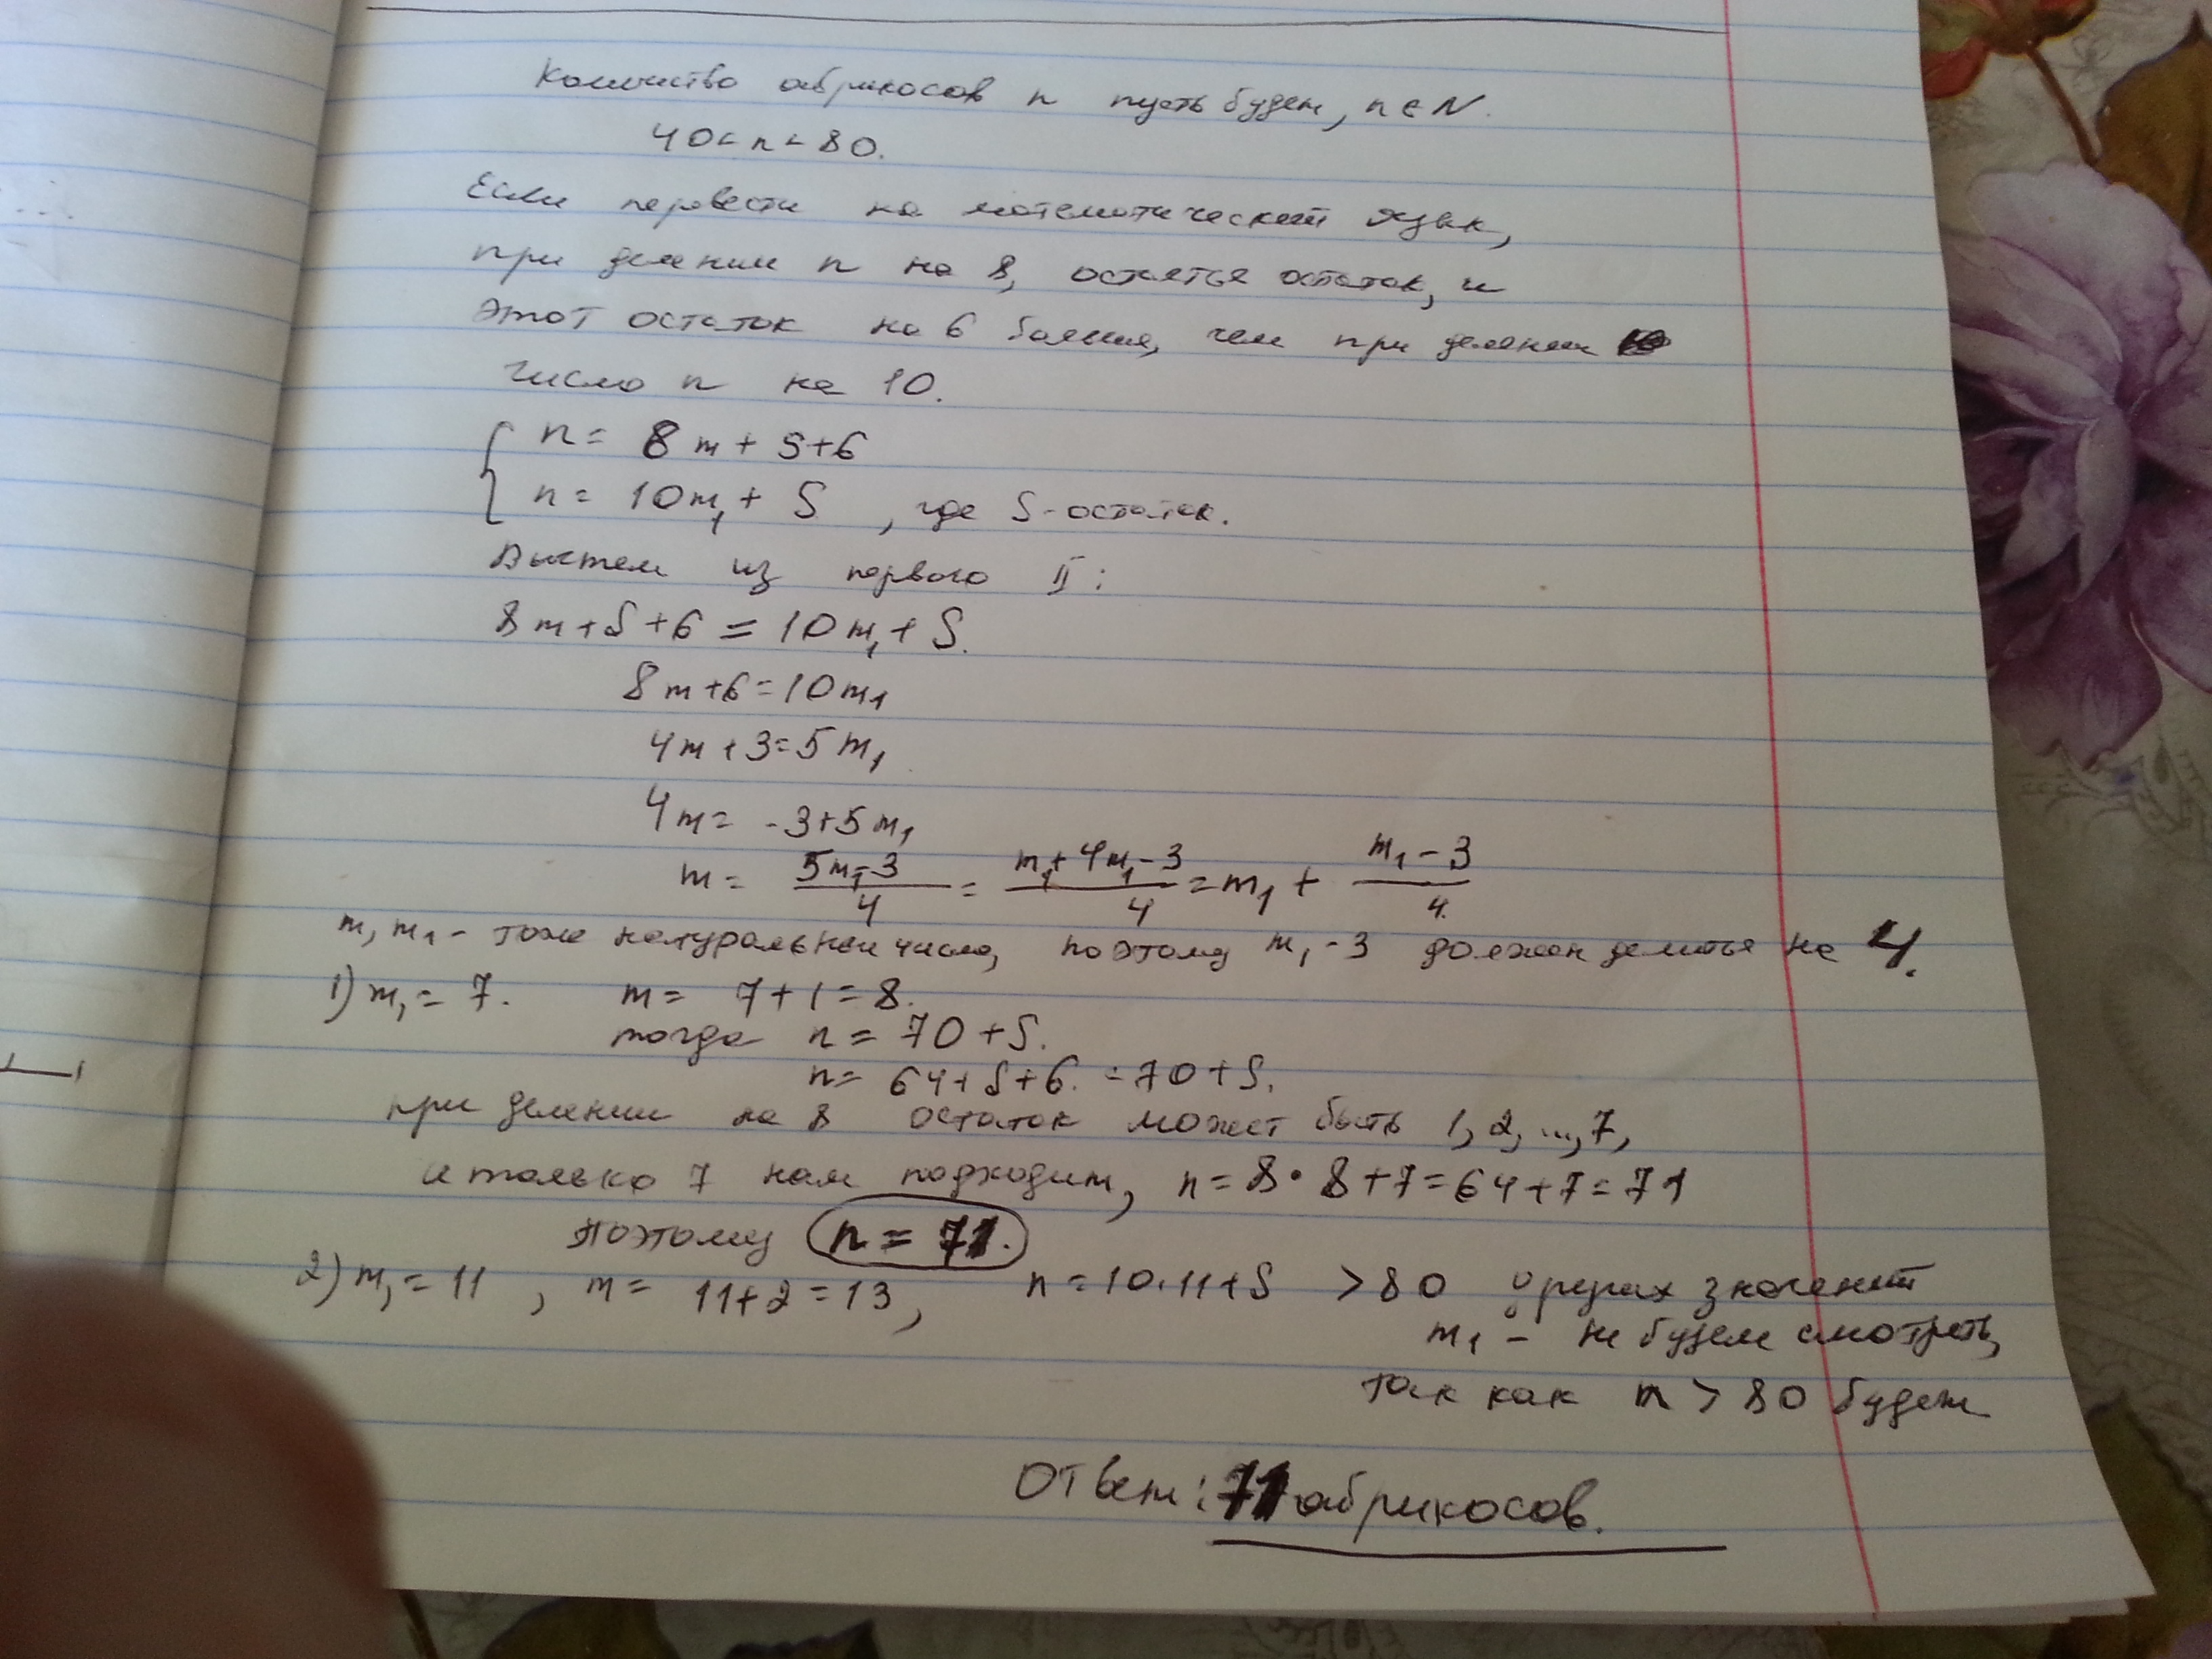 Количество абрикосов n пусть будет, n ∈ N.
40 < n < 80.
Если перевести на математический язык,
при делении n на 8, остаётся остаток, и
этот остаток на 6 больше, чем при делении
число n на 10.
{ n = 8m + S + 6
n = 10m₁ + S , где S - остаток.
Вычтем из первого II:
8m + S + 6 = 10m₁ + S.
8m + 6 = 10m₁
4m + 3 = 5m₁
4m = -3 + 5m₁
m = (5m₁ - 3)/4 = (m₁ + 4m₁ - 3)/4 = m₁ + (m₁ - 3)/4.
m, m₁ - тоже натуральное число, поэтому m₁ - 3 должен делиться на 4.
1) m₁ = 7. m = 7 + 1 = 8.
тогда n = 70 + S.
n = 64 + S + 6. = 70 + S.
при делении на 8 остаток может быть 1, 2, ..., 7,
и только 7 нам подходит, n = 8 · 8 + 7 = 64 + 7 = 71
Поэтому n = 71.
2) m₁ = 11 , m = 11 + 2 = 13, n = 10 · 11 + S > 80 других значений
m₁ - не будем смотреть,
так как n > 80 будет
Ответ: 71 абрикосов.